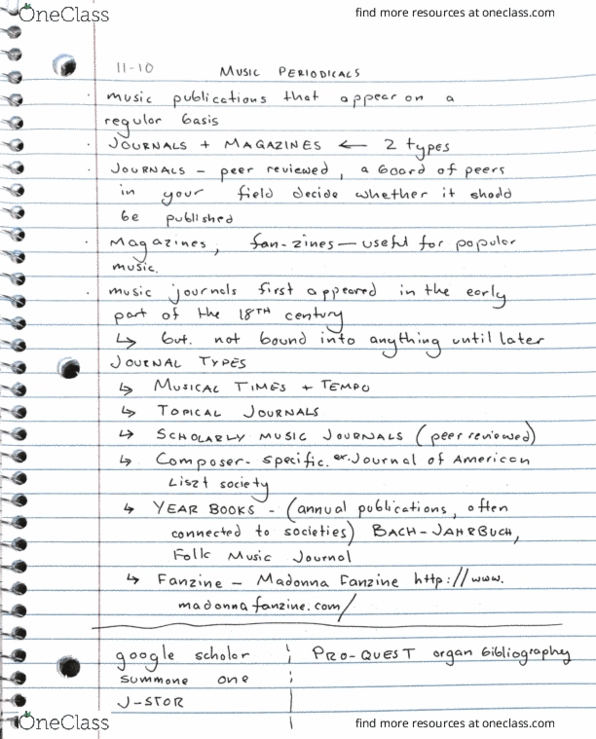 OneClass
find more resources at oneclass.com
11-10 MUSIC PERIODICALS
· music publications that appear on a
regular basis
· JOURNALS + MAGAZINES ← 2 types
· JOURNALS - peer reviewed, a board of peers
in your field decide whether it should
be published
· Magazines, fan-zines — useful for popular
music.
· music journals first appeared in the early
part of the 18TH century
↳ but. not bound into anything until later
JOURNAL TYPES
↳ MUSICAL TIMES + TEMPO
↳ TOPICAL JOURNALS
↳ SCHOLARLY MUSIC JOURNALS (peer reviewed)
↳ Composer- specific. ex. Journal of American
Liszt society
↳ YEAR BOOKS - (annual publications, often
connected to societies) BACH-JAHRBUCH,
Folk Music Journal
↳ Fanzine - Madonna Fanzine http://www.
madonnafanzine.com/
google scholar PRO-QUEST organ bibliography
summone one
J-STOR
OneClass
find more resources at oneclass.com